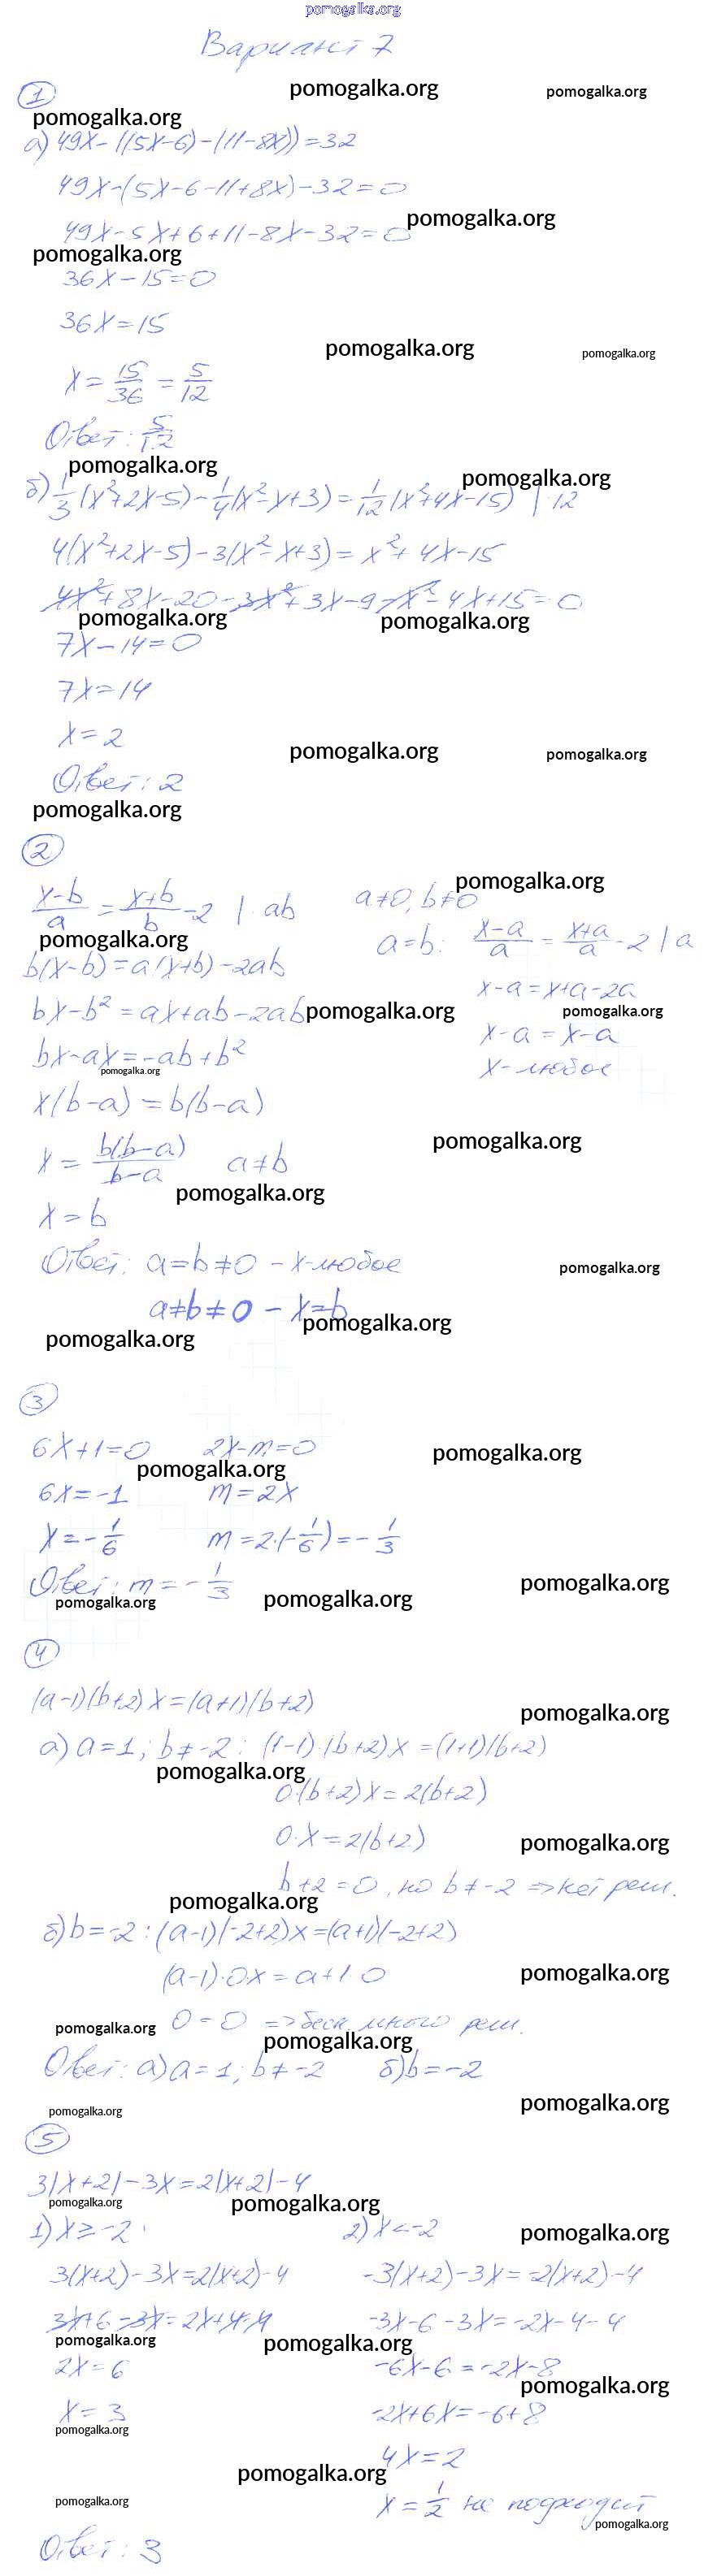 pomogalka.org
Вариант 7
①
pomogalka.org pomogalka.org
pomogalka.org
а) 49x-((5x-6)-(11-8x))=32
49x-(5x-6-11+8x)-32=0
pomogalka.org
49x-5x+6+11-8x-32=0
pomogalka.org
36x-15=0
36x=15
pomogalka.org pomogalka.org
x=15/36=5/12
Ответ: 5/12
pomogalka.org pomogalka.org
б) 1/3(x²+2x-5)-1/4(x²-x+3)=1/12(x²+4x-15) |·12
4(x²+2x-5)-3(x²-x+3)=x²+4x-15
4x²+8x-20-3x²+3x-9-x²-4x+15=0
pomogalka.org pomogalka.org
7x-14=0
7x=14
x=2
pomogalka.org pomogalka.org
Ответ: 2
pomogalka.org
②
pomogalka.org
(x-b)/a=(x+b)/b-2 |·ab a≠0, b≠0
pomogalka.org
a=b: (x-a)/a=(x+a)/a-2 |·a
b(x-b)=a(x+b)-2ab
x-a=x+a-2a
bx-b²=ax+ab-2ab
pomogalka.org pomogalka.org
x-a=x-a
bx-ax=-ab+b²
pomogalka.org
x-любое
x(b-a)=b(b-a)
pomogalka.org
x=b(b-a)/(b-a) a≠b
pomogalka.org
x=b
Ответ: a=b≠0 - x-любое
pomogalka.org
a≠b≠0 - x=b
pomogalka.org
pomogalka.org
③
6x+1=0 2x-m=0
pomogalka.org
pomogalka.org
6x=-1 m=2x
x=-1/6 m=2·(-1/6)=-1/3
Ответ: m=-1/3
pomogalka.org
pomogalka.org pomogalka.org
④
(a-1)(b+2)x=(a+1)(b+2)
pomogalka.org
а) a=1; b≠-2: (1-1)·(b+2)x=(1+1)(b+2)
pomogalka.org
0·(b+2)x=2(b+2)
0·x=2(b+2)
pomogalka.org
b+2=0, но b≠-2 => нет реш.
pomogalka.org
б) b=-2: (a-1)(-2+2)x=(a+1)(-2+2)
(a-1)·0x=a+1·0
pomogalka.org
0=0 => беск. много реш.
pomogalka.org
pomogalka.org
Ответ: а) a=1; b≠-2 б) b=-2
pomogalka.org
pomogalka.org
⑤
3|x+2|-3x=2|x+2|-4
pomogalka.org pomogalka.org
1) x≥-2 2) x<-2
pomogalka.org
3(x+2)-3x=2(x+2)-4 -3(x+2)-3x=-2(x+2)-4
3x+6-3x=2x+4-4 -3x-6-3x=-2x-4-4
pomogalka.org pomogalka.org
2x=6 -6x-6=-2x-8
pomogalka.org
x=3 -2x+6x=-6+8
pomogalka.org
4x=2
pomogalka.org
pomogalka.org
x=1/2 не подходит
pomogalka.org
Ответ: 3